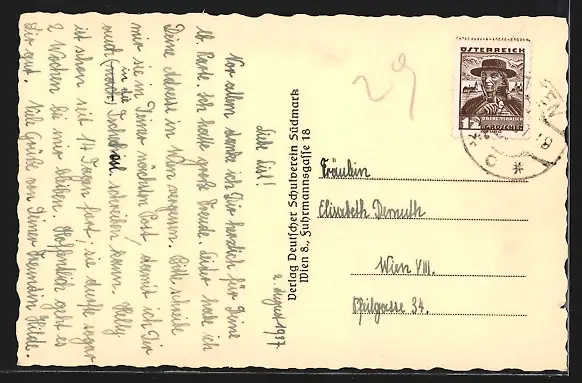 2. August 1937
Liebe Lisl!
Vor allem danke ich Dir herzlich für Deine
lb. Karte. Ich hatte große Freude. Leider habe ich
Deine Adresse in Wien vergessen. Bitte schreibe
mir sie in Deiner nächsten Post, damit ich Dir
auch in die schreiben kann. Helly
ist schon seit 14 Tagen fort; sie durfte sogar
2 Wochen bei mir bleiben. Hoffentlich geht es
Dir gut. Viele Grüße von Deiner Freundin Hilde.
Verlag Deutscher Schulverein Südmark
Wien 8., Fuhrmannsgasse 18
29
ÖSTERREICH
OBERÖSTERREICH
12 GROSCHEN
Fräulein
Elisabeth Demuth
Wien VIII.
Pfeilgasse 34.